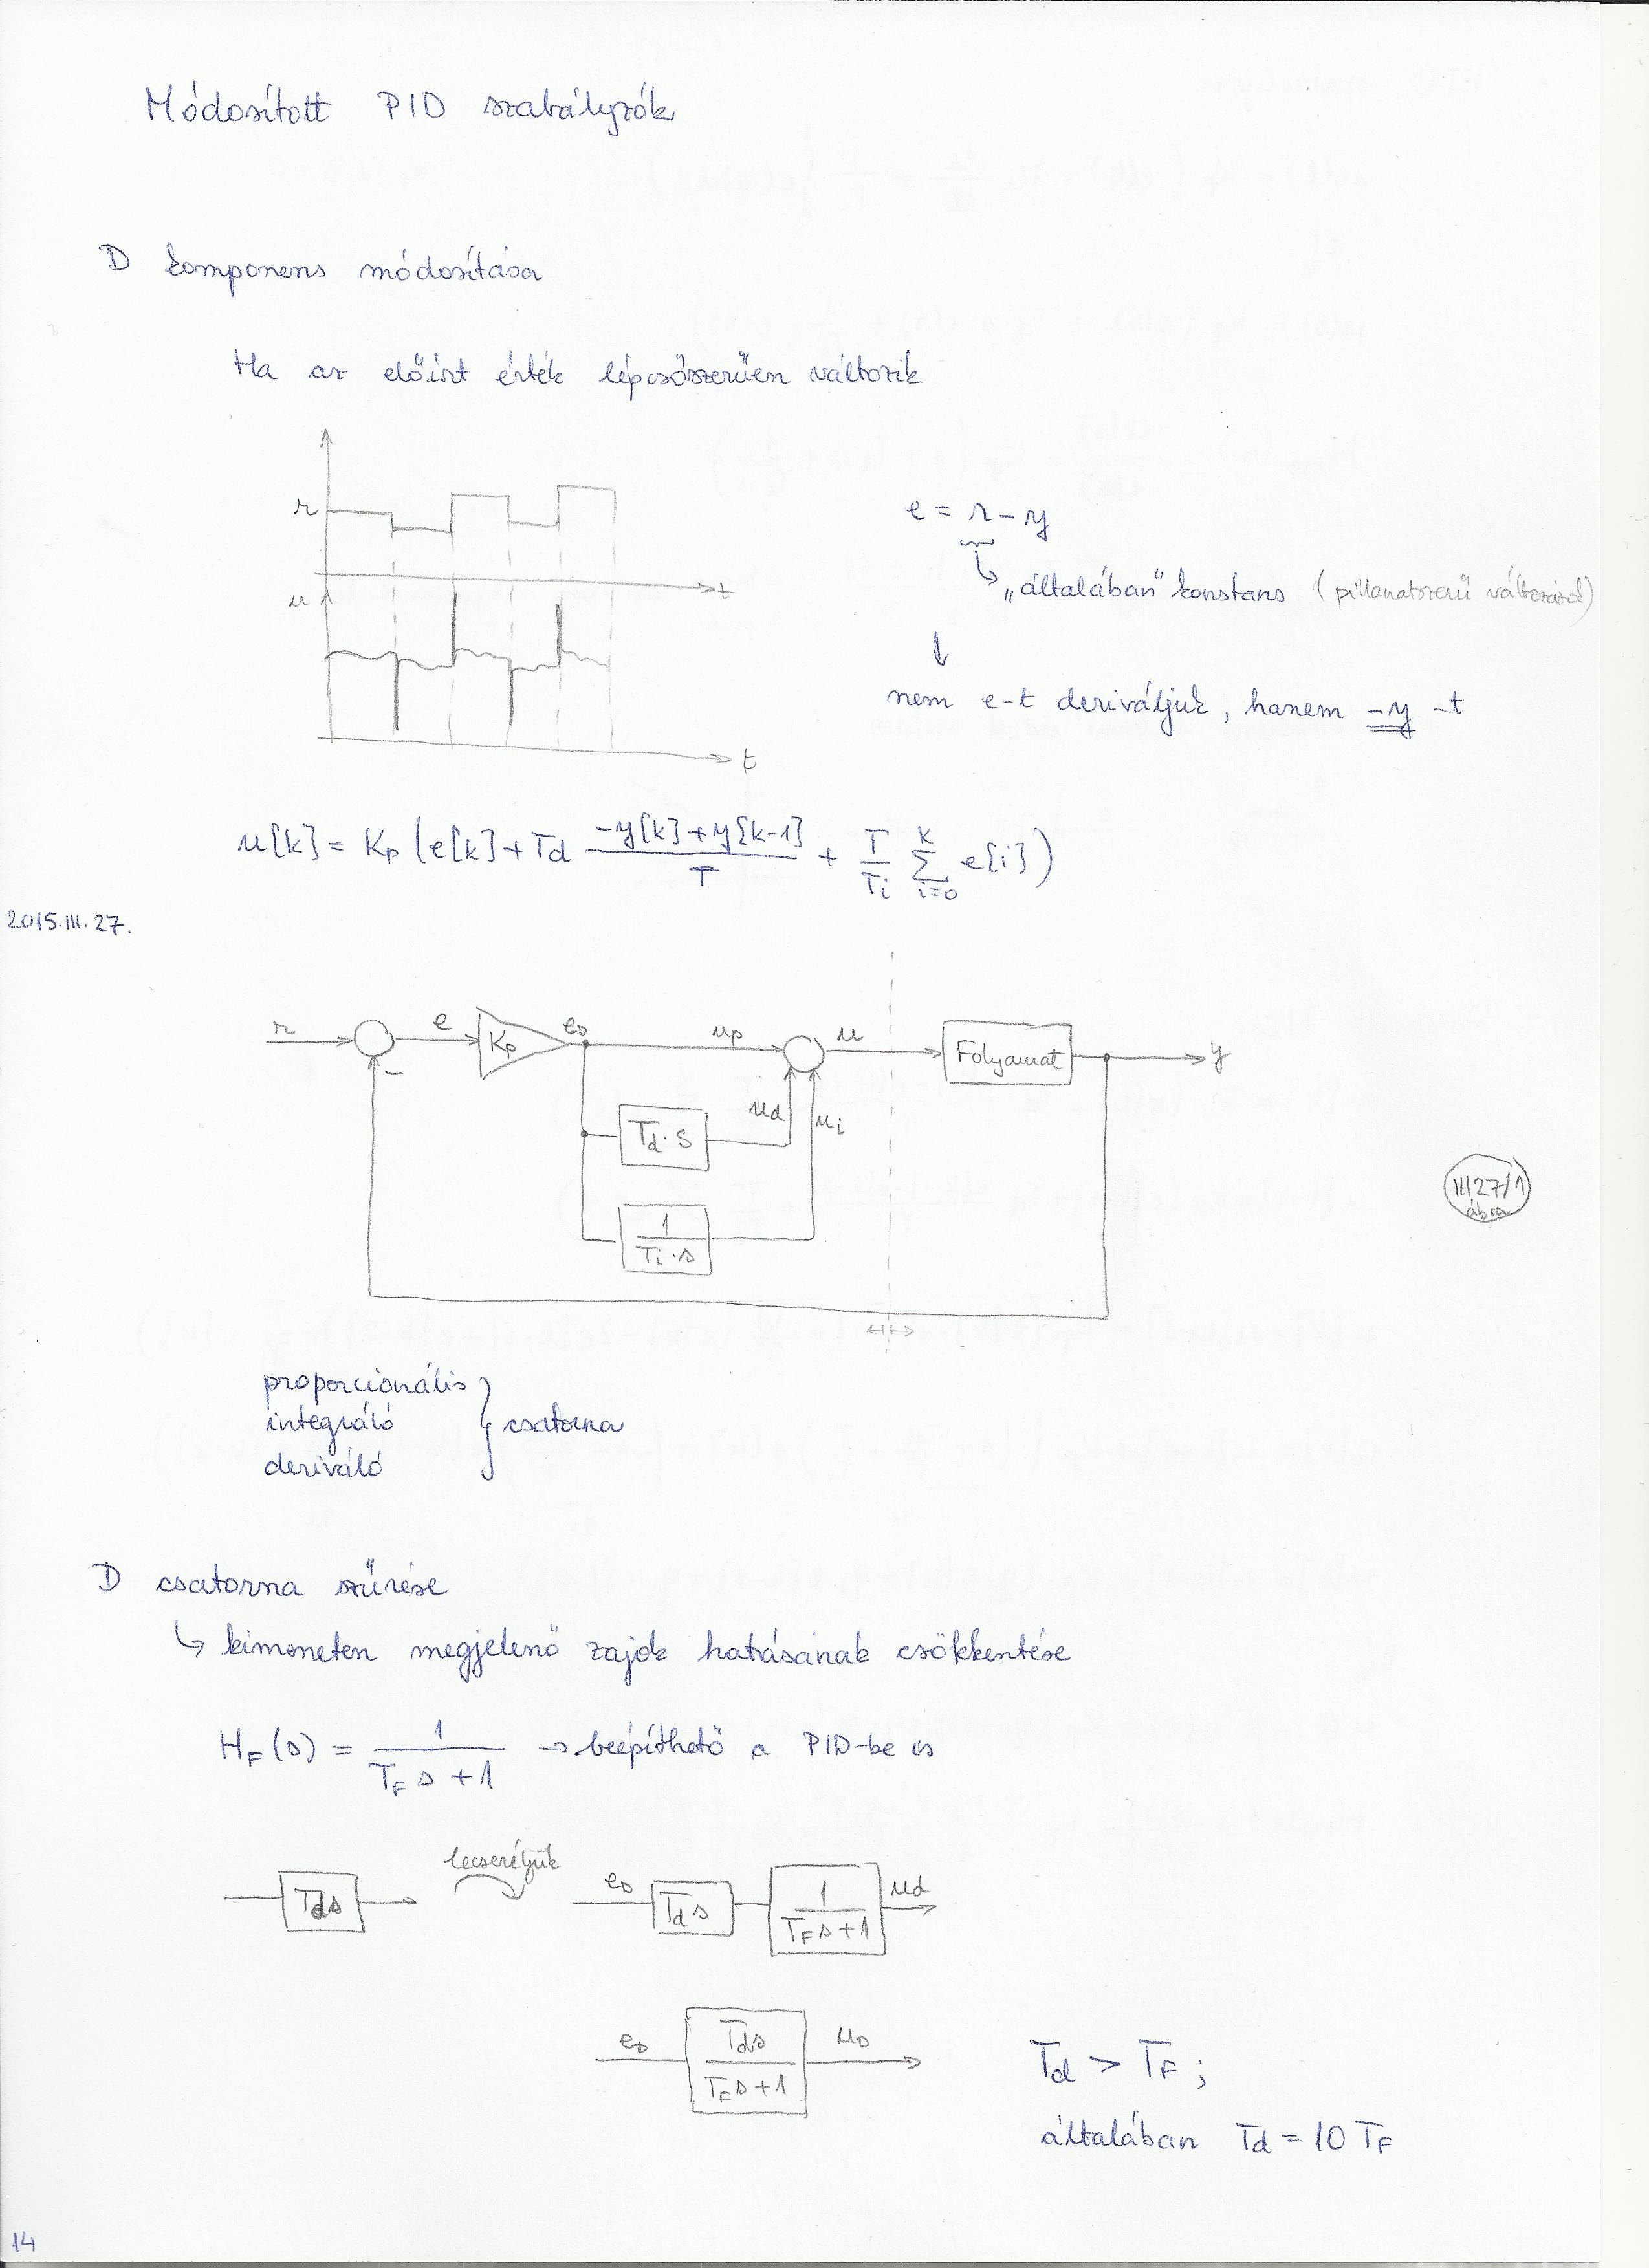 Módosított PID szabályzók
D komponens módosítása
Ha az előírt érték lépcsőszerűen változik
r
t
u
t
e = r - y
"általában" konstans (pillanatszerű változású)
↓
nem e-t deriváljuk, hanem -y -t
u[k] = Kp (e[k] + Td (-y[k] + y[k-1])/T + T/Ti Σ_{i=0}^{k} e[i])
2015.III.27.
r e Kp e_D up u Folyamat y
-
ud ui
Td · s
1/(Ti · s)
III27/1
ábra
proporcionális
integráló } csatorna
deriváló
D csatorna szűrése
↳ kimeneten megjelenő zajok hatásának csökkentése
H_F(s) = 1/(T_F s + 1) → beépíthető a PID-be is
lecseréljük
Tds e_D Tds 1/(T_F s + 1) ud
e_D Tds/(T_F s + 1) u_D
Td > T_F ;
általában Td = 10 T_F
14